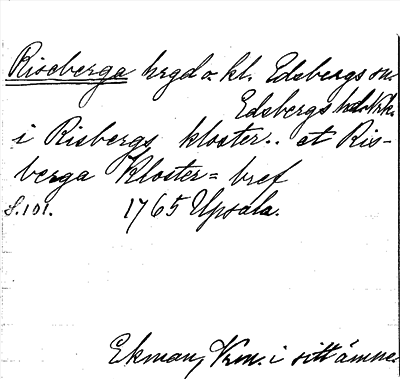 Riseberga hrgd o. kl. Edsbergs sn.
Edsbergs hd. Nrk.
i Risbergs kloster.. et Ris-
berga Kloster= bref
S. 101. 1765 Upsala.
Ekman, Vrm. i sitt ämne